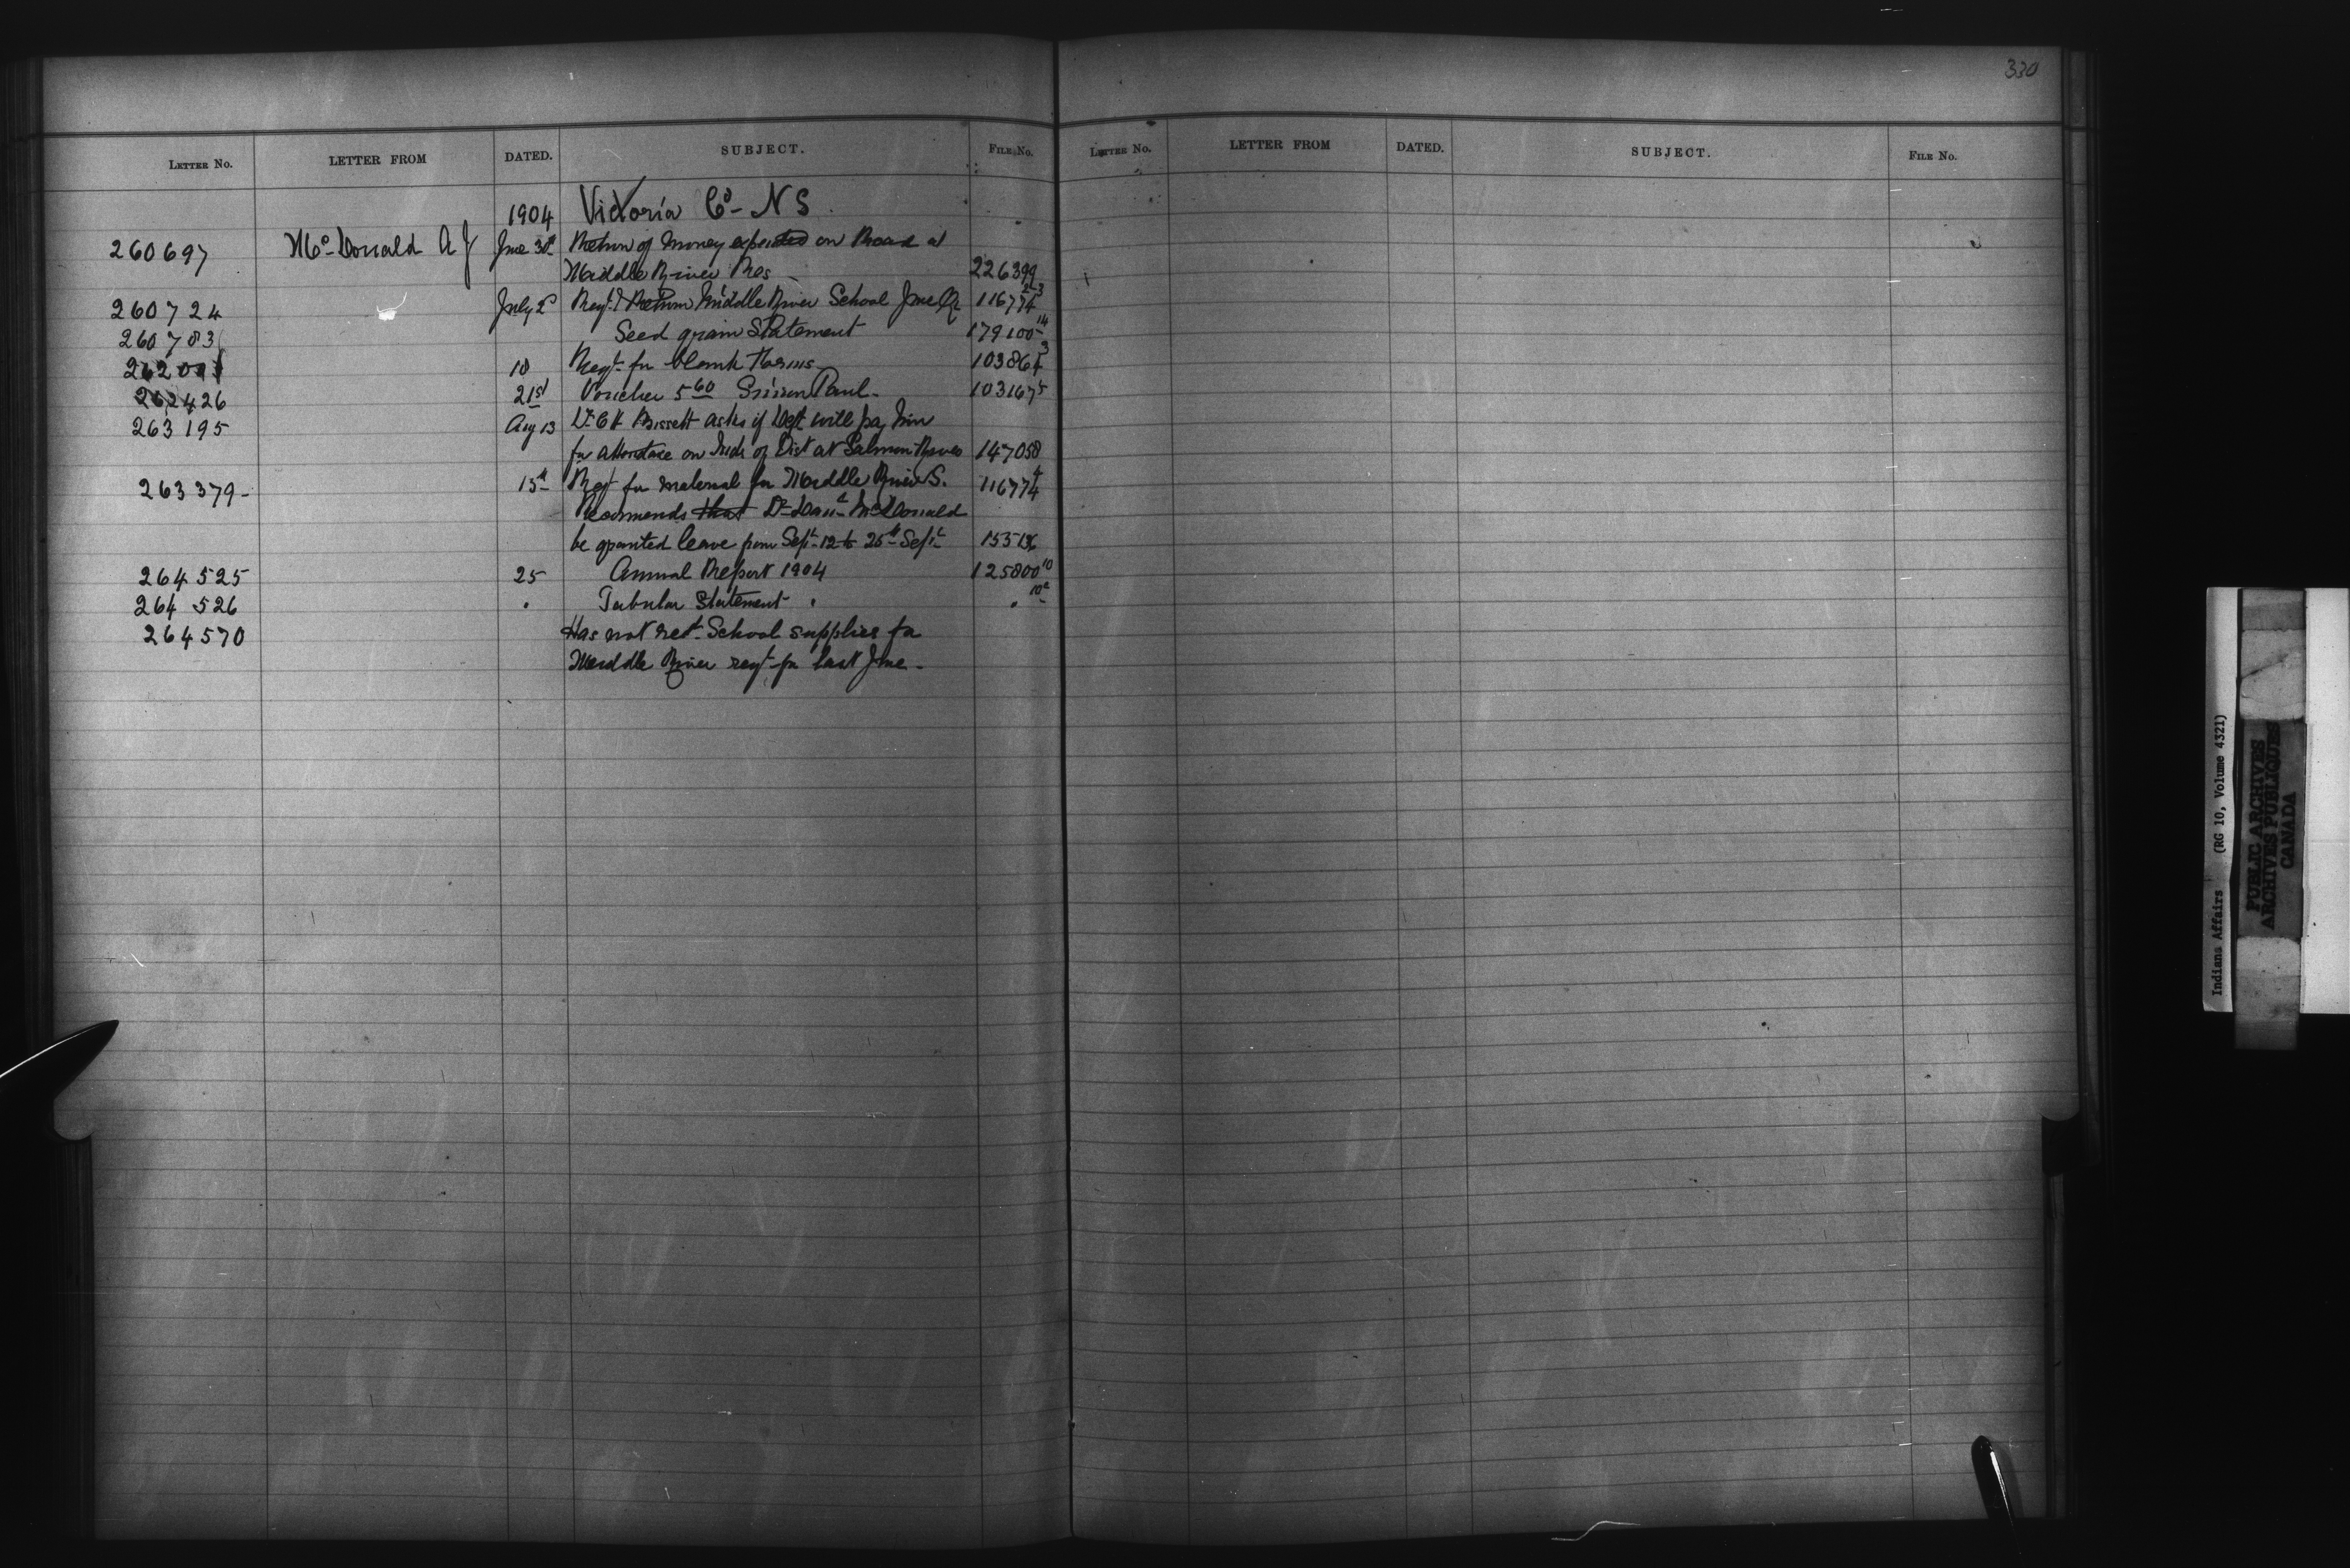 330
LETTER No. LETTER FROM DATED. SUBJECT. FILE No.
LETTER No. LETTER FROM DATED. SUBJECT. FILE No.
1904 Victoria Co - N S
260697 McDonald A J June 30th Return of money expended on Road at
Middle River Res 226399
260724 July 2d Reqt & Return Middle River School June Qr 116774 2-3
260783 Seed grain Statement 179100-14
18 Reqt. for blank Forms 103864 3
262426 21st Voucher 5 60 Simon Paul - 103167 5
263195 Aug 13 Dr. C H Bissett asks if Dept will pay him
for attendance on Inds of Dist at Salmon River 147058
263379 - 15th Reqt for material for Middle River S. 116774 4
Recommends that Dr Dan McDonald
be granted leave from Sept 12 to 25th Sept
264525 25 Annual Report 1904 125800 10
264526 " Tabular Statement " " 10a
264570 Has not recd School supplies for
Middle River reqt for last June -
Indians Affairs (RG 10, Volume 4321)
PUBLIC ARCHIVES
ARCHIVES PUBLIQUES
CANADA